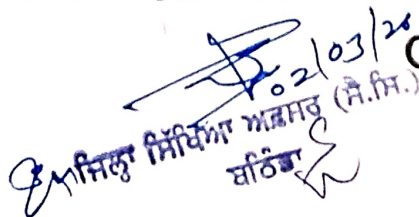 02/03/20
ਜਿਲ੍ਹਾ ਸਿੱਖਿਆ ਅਫਸਰ (ਸੈ.ਸਿ.)
ਬਠਿੰਡਾ